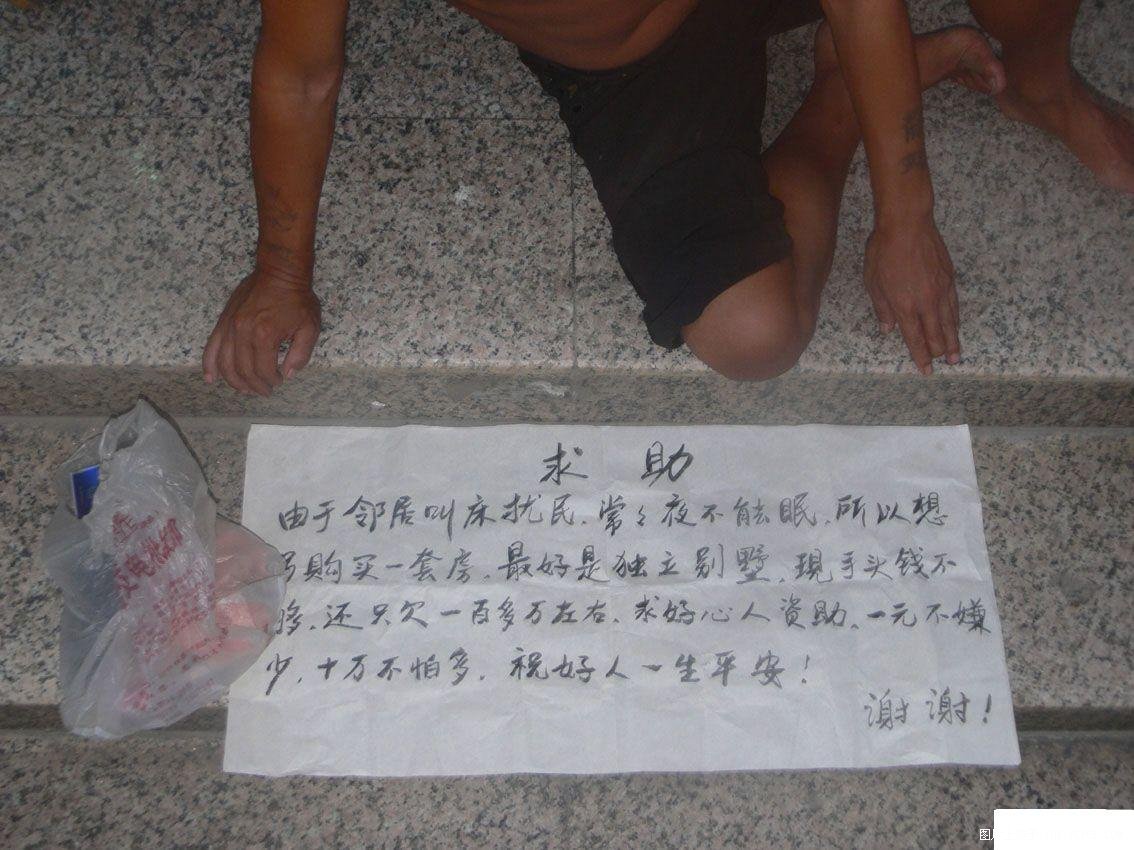 求 助
由于邻居叫床扰民，常々夜不能眠，所以想
另购买一套房，最好是独立别墅，現手头钱不
够，还只欠一百多万左右，求好心人资助，一元不嫌
少，十万不怕多，祝好人一生平安！
谢谢！